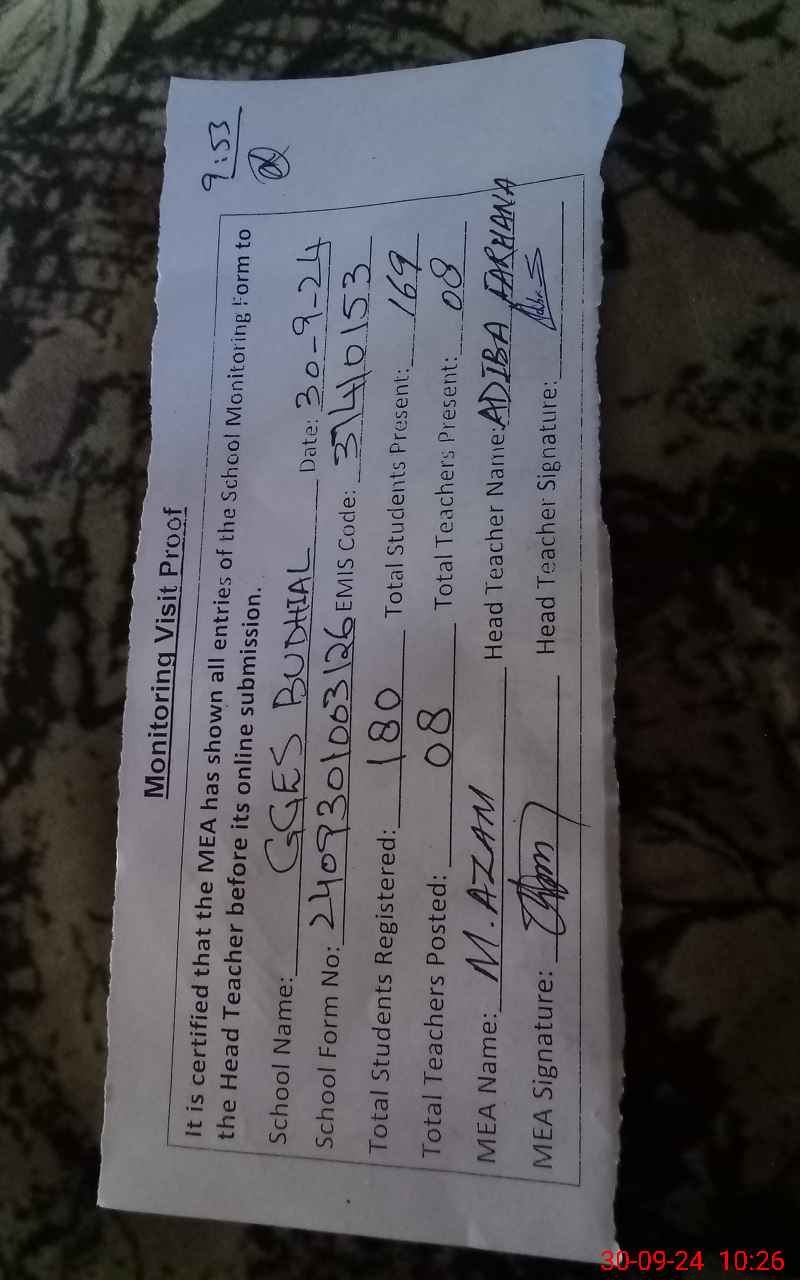 9:53
Monitoring Visit Proof
It is certified that the MEA has shown all entries of the School Monitoring Form to
the Head Teacher before its online submission.
School Name: GGES BUDHIAL Date: 30-9-24
School Form No: 2409301063126 EMIS Code: 37410153
Total Students Registered: 180 Total Students Present: 169
Total Teachers Posted: 08 Total Teachers Present: 08
MEA Name: M. AZAM Head Teacher Name: ADIBA FARHANA
MEA Signature: Head Teacher Signature:
30-09-24 10:26